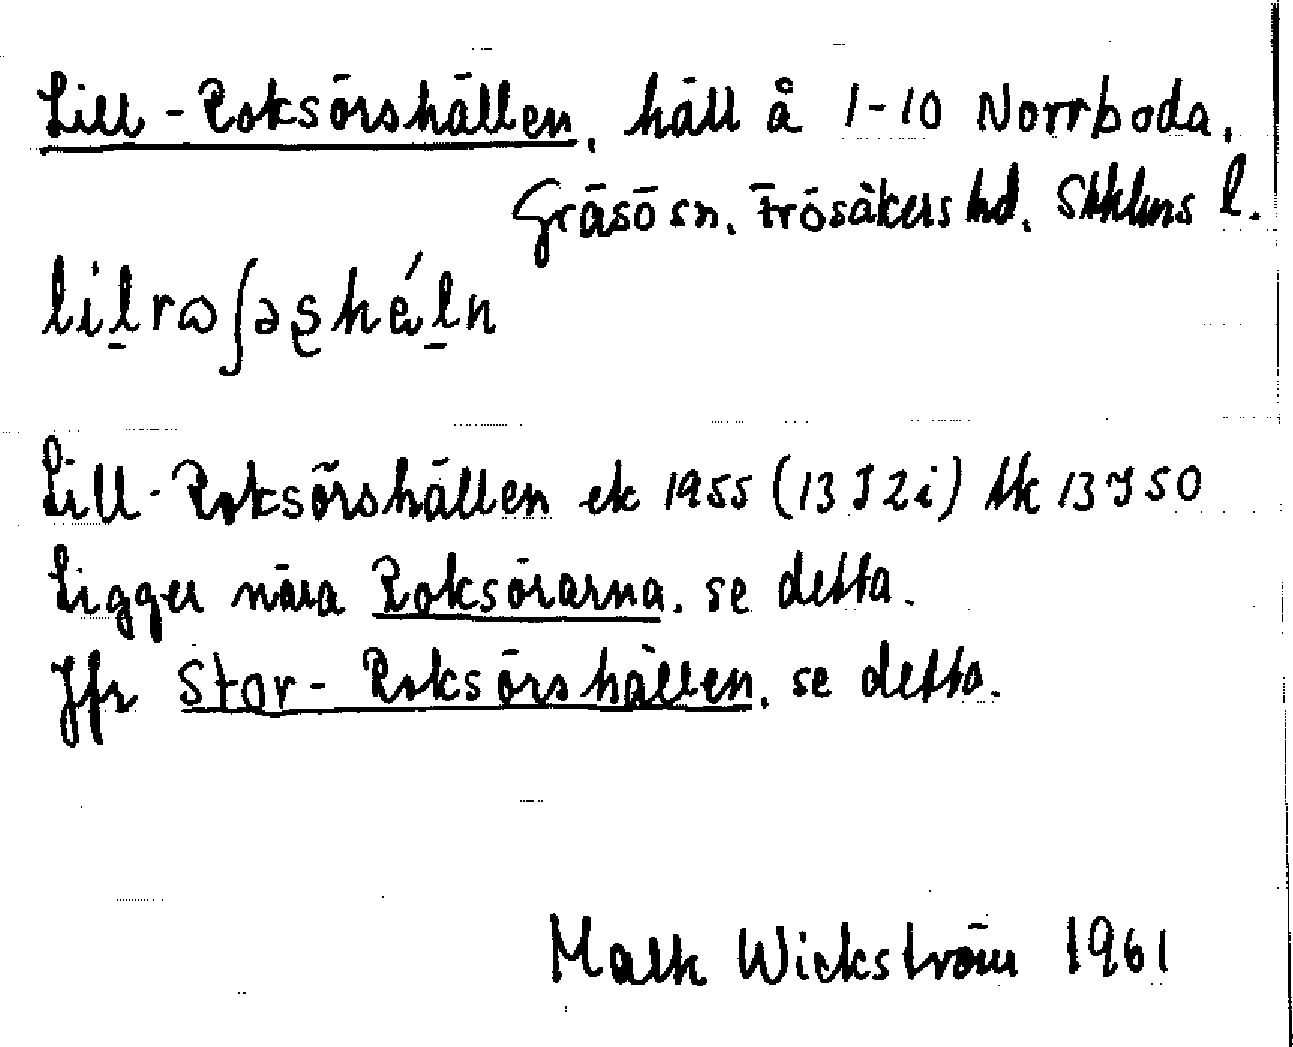 Lill-Roksörshällen, häll å 1-10 Norrboda,
Gräsö sn, Frösåkers hd, Sthlms l.
Lill-Roksörshällen ek 1955 (13 J 2i) tk 13 J SO
Ligger nära Roksörarna, se detta.
Jfr Stor-Roksörshällen, se detta.
Wickström 1961